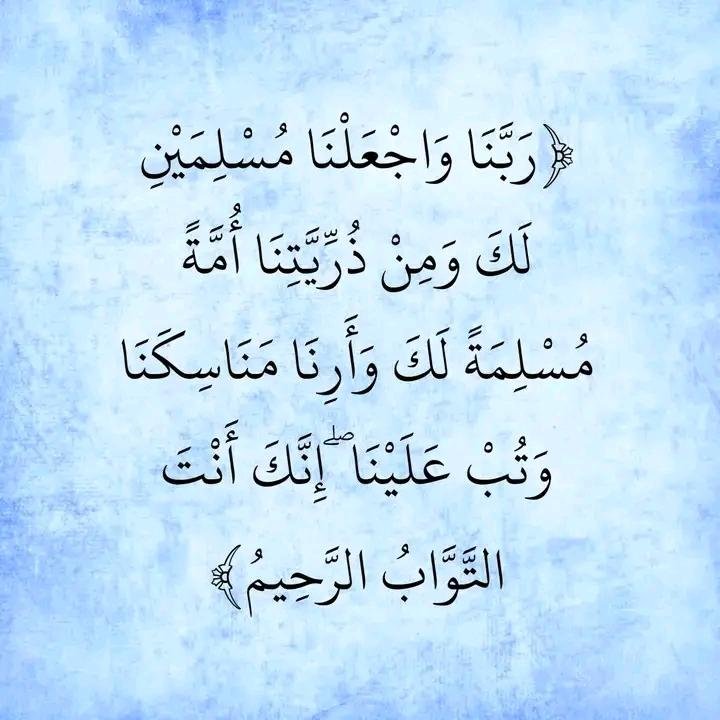 ﴿رَبَّنَا وَاجْعَلْنَا مُسْلِمَيْنِ
لَكَ وَمِنْ ذُرِّيَّتِنَا أُمَّةً
مُسْلِمَةً لَكَ وَأَرِنَا مَنَاسِكَنَا
وَتُبْ عَلَيْنَا ۖ إِنَّكَ أَنْتَ
التَّوَّابُ الرَّحِيمُ﴾